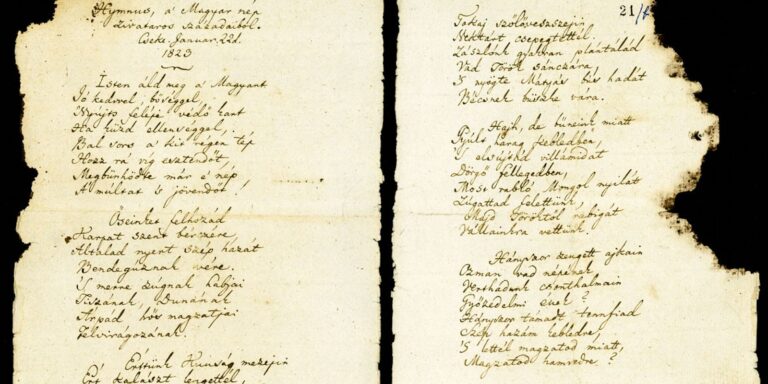 Hymnus, a' Magyar nép
zivataros századaiból.
Cseke. Januar. 22d.
1823
Isten áld meg a' Magyart
Jó kedvvel, bőséggel,
Nyújts feléje védő kart
Ha küzd ellenséggel,
Bal sors a' kit régen tép
Hozz rá víg esztendőt,
Megbünhödte már e' nép
A' múltat 's jövendőt!
Őseinket felhozád
Kárpát szent bérczére,
Általad nyert szép hazát
Bendegúznak vére.
'S merre zúgnak habjai
Tiszának, Dunának
Árpád hős magzatjai
Felvirágozának.
Értünk Kunság mezején
Ért kalászt lengettél,
21/
Tokaj szőlővesszején
Nektárt csepegtettél.
Zászlónk gyakran plántálád
Vad Török sánczára,
'S nyögte Mátyás bús hadát
Bécsnek büszke vára.
Hajh, de bűneink miatt
Gyúlt harag kebledben,
'S elsújtád villámidat
Dörgő fellegedben,
Most rabló Mongol nyilát
Zúgattad felettünk,
Majd Töröktől rabigát
Vállainkra vettünk.
Hányszor zengett ajkain
Ozman vad népének
Vert hadunk csonthalmain
Győzedelmi ének?
Hányszor támadt tennfiad
Szép hazám kebledre,
'S lettél magzatod miatt,
Magzatod hamvedre?